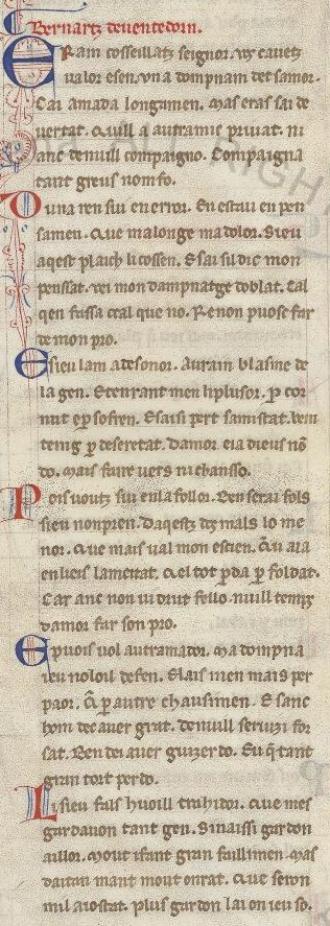 Bernartz deuentedorn.
Eram cosseillatz seignor. uos cauetz
ualor esen. una dompnam det samor.
Cai amada longamen. Mas eras sai de
uertat. Quill a autramic priuat. ni
anc de nuill compaigno. Compaigna
tant greus nom fo.
Duna ren sui en error. En estau en pen
samen. Que malonge ma dolor. Sieu
aqest plaich li cossen. E sai sil dic mon
penssat. Vei mon dampnatge doblat. Cal
qen fassa o cal que no. Re non puosc far
de mon pro.
E sieu lam a desonor. Aurai n blasme de
la gen. E tenrant men li plusor. p cor
nut e p sofren. E saisi pert samistat. ben
teing p deseretat. Damor. e ia dieus nō
do. Mais faire uers ni chansso.
Pois uoutz sui en la follor. Ben serai fols
sieu non pren. Daqestz dos mals lo me
nor. Que mais ual mon escien. Qu aia
en lieis lameitat. Qel tot pda p foldat.
Car anc non ui drut fello. nuill temps
damor far son pro.
E puois uol autramador. Ma dompna
ieu no loil defen. E lais men mais per
paor. Q p autre chausimen. E sanc
hom dec auer grat. De nuill seruizi for
sat. Ben dei auer guizerdo. Eu q tant
gran tort perdo.
Li sieu fals huoill trahidor. Que mes
gardauon tant gen. Sinaissi gardon
aillor. Mout i fant gran faillimen. Mas
daitan mant mout onrat. Que seron
mil aiostat. plus gardon lai on ieu so.